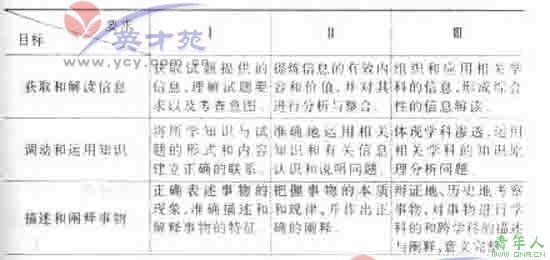 要求
目标
Ⅰ
Ⅱ
Ⅲ
英才苑
www.ycy.com.cn
获取和解读信息
获取试题提供的
信息,理解试题要
求以及考查意图。
提炼信息的有效内
容和价值,并对其
进行分析与整合。
组织和应用相关学
科的信息,形成综合
性的信息解读。
调动和运用知识
将所学知识与试
题的形式和内容
建立正确的联系。
准确地运用相关
知识和有关信息
认识和说明问题。
体现学科渗透,运用
相关学科的知识原
理分析问题。
描述和阐释事物
正确表述事物的
现象,准确描述和
解释事物的特征
把握事物的本质
和规律,并作出正
确的阐释。
辩证地、历史地考察
事物,对事物进行学
科的和跨学科的描述
与阐释,意义完整
青年人
www.QNR.CN